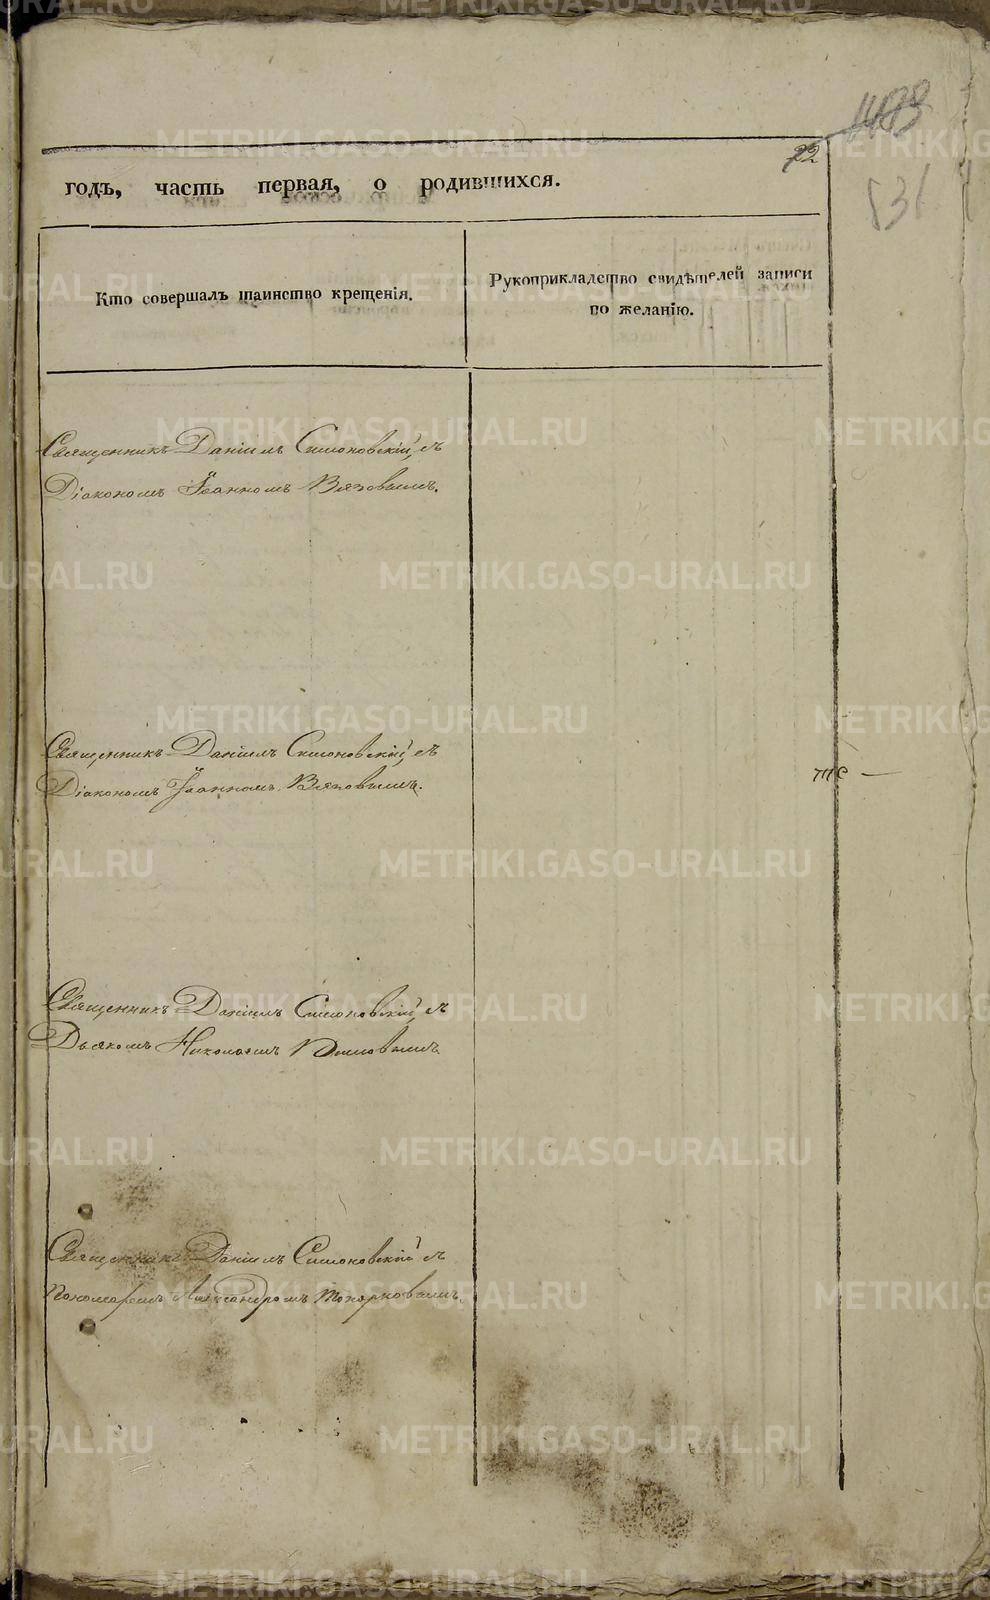 22
531
годъ, часть первая, о родившихся.
Кто совершалъ таинство крещенія.
Рукоприкладство свидѣтелей записи
по желанію.
Священникъ Даніилъ Симоновскій съ
Діакономъ Іоанномъ Вяповымъ.
Священникъ Даніилъ Симоновскій съ
Діакономъ Іоанномъ Вяповымъ.
Священникъ Даніилъ Симоновскій съ
Дьякомъ Николаемъ
Священникъ Даніилъ Симоновскій съ
Пономаремъ Александромъ Топорковымъ.
METRIKI.GASO-URAL.RU